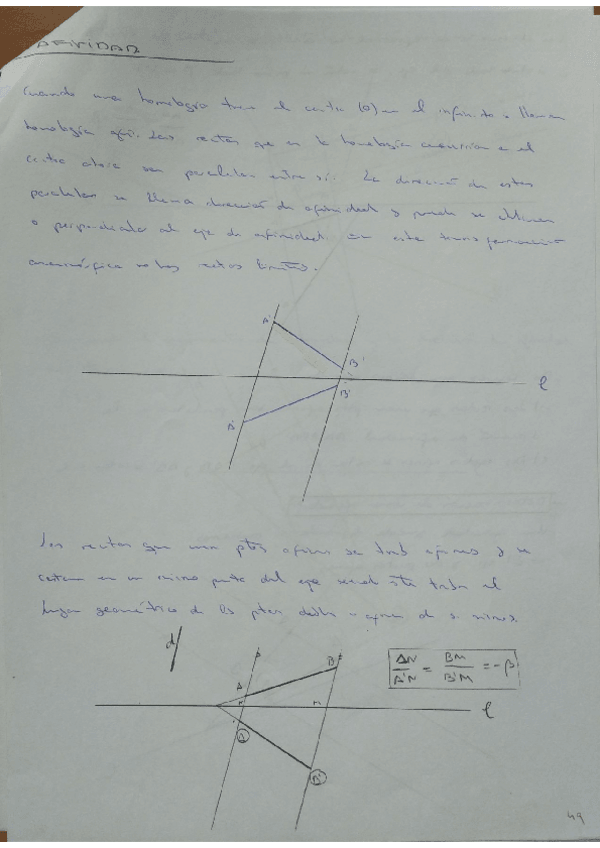 AFINIDAD
Cuando una homología tiene el centro (O) en el infinito se llama
homología afín. Las rectas que en la homología concurrían en el
centro ahora son paralelas entre sí. La dirección de estas
paralelas se llama dirección de afinidad y puede ser oblicua
o perpendicular al eje de afinidad. En esta transformación
no hay rectas límites.
A'
B'
B'
A'
e
Las rectas que unen ptos afines se
cortan en un mismo punto del eje siendo este el
lugar geométrico de los ptos dobles o afines de si mismos.
d
B
A
N M
AN/A'N = BM/B'M = -β
e
49